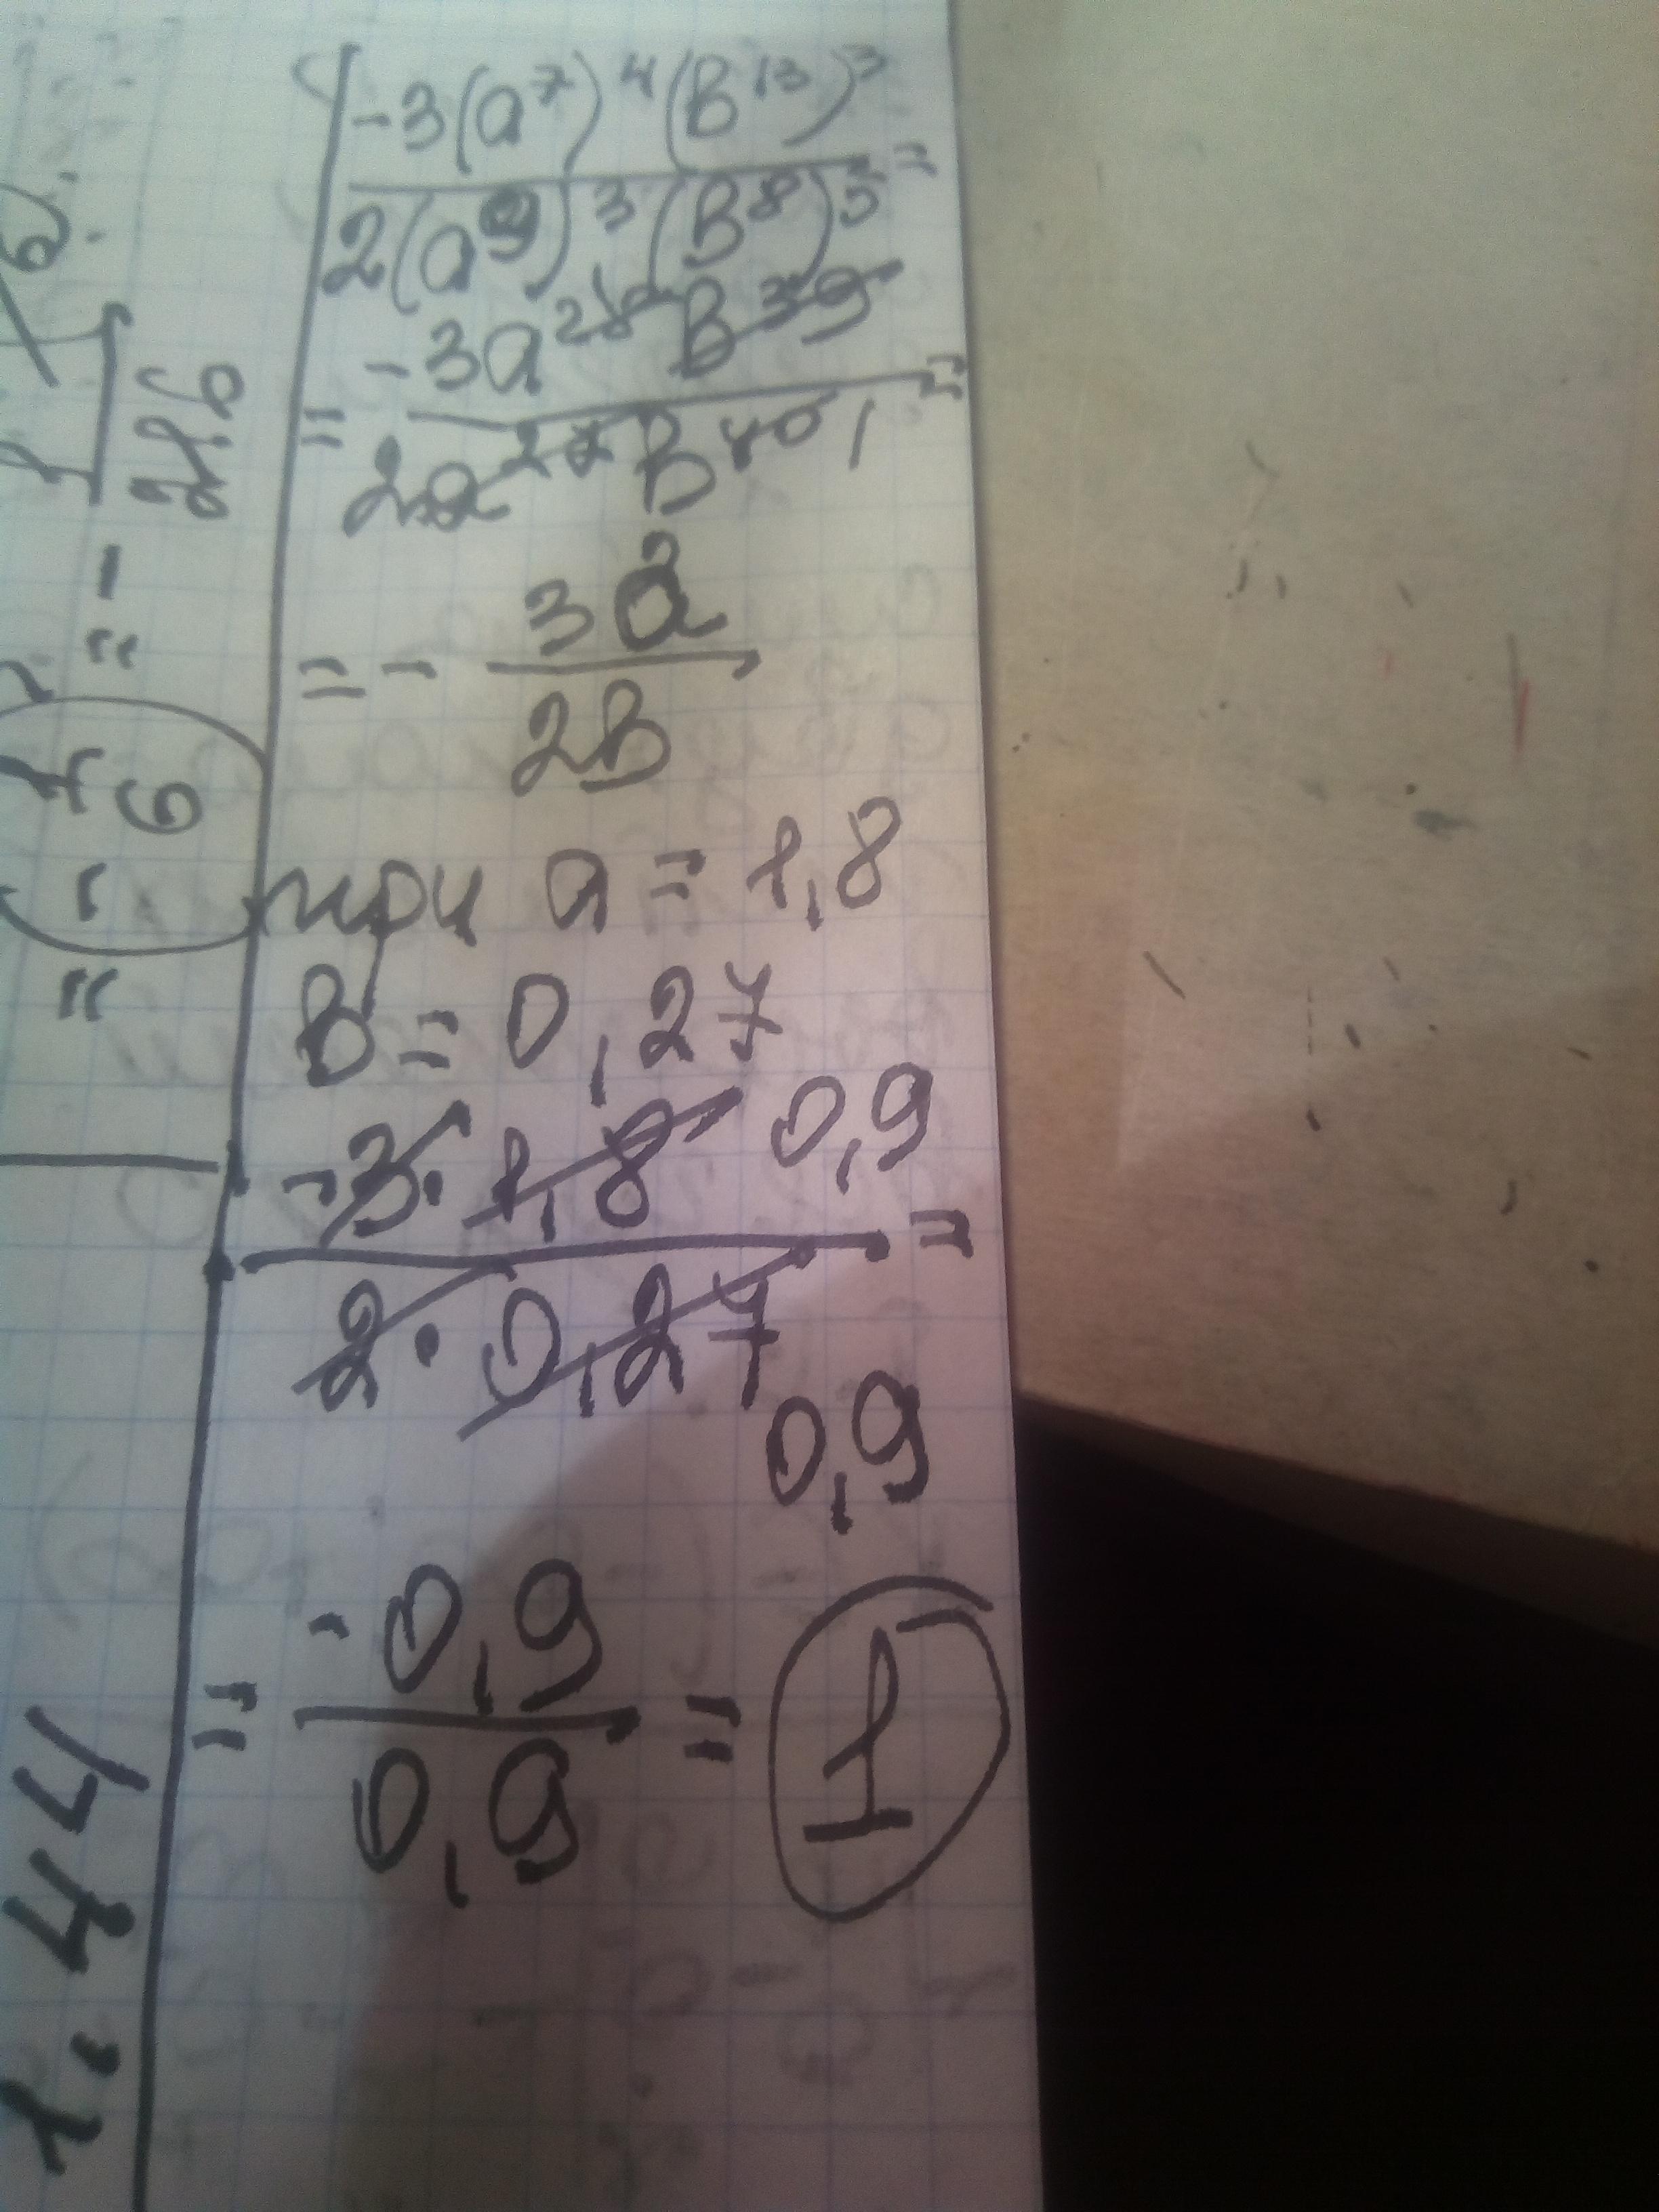 -3(a⁷)⁴(в¹³)³
2(a⁹)³(в⁸)⁵ =
= -3a²⁸в³⁹
2a²⁷в⁴⁰ 1 =
= - 3a
2в
при a = 1,8
в = 0,27
-3 · 1,8 0,9
2 · 0,27 =
0,9
= -0,9
0,9 = 1
1.44